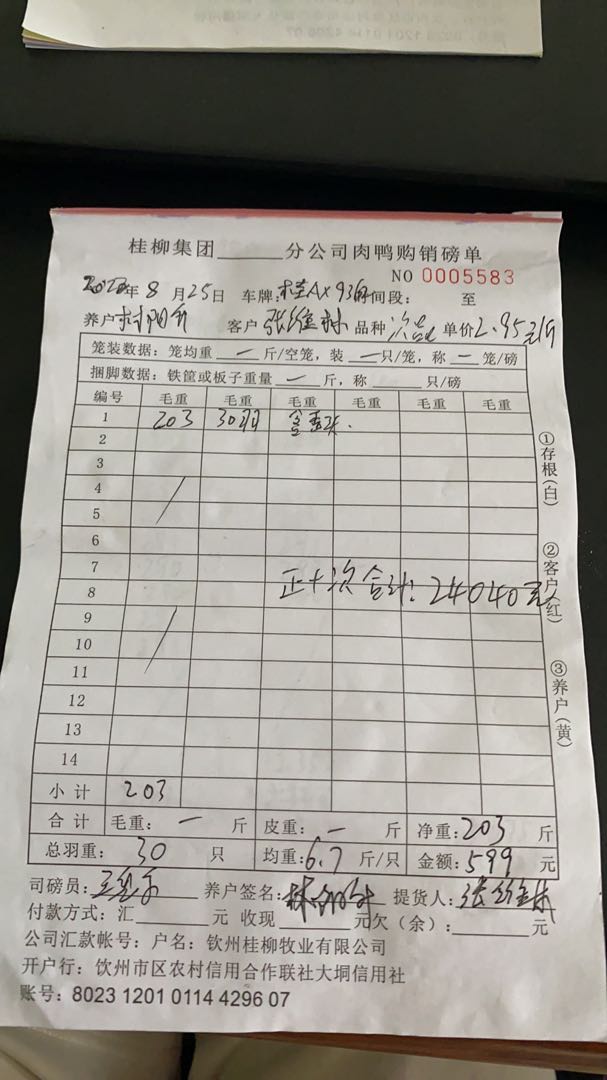 桂柳集团______分公司肉鸭购销磅单
NO 0005583
2022年8月25日 车牌: 时间段: 至
养户 客户 张 林 品种 次品 单价2.95元/斤
笼装数据:笼均重 一 斤/空笼,装 一 只/笼,称 一 笼/磅
捆脚数据:铁筐或板子重量 一 斤,称____只/磅
编号 毛重 毛重 毛重 毛重 毛重 毛重
1 203 30羽
2
3
4
5
6
7
正+次合计:24040元
8
9
10
11
12
13
14
小计 203
合计 毛重: 一 斤 皮重: 一 斤 净重:203 斤
总羽重: 30 只 均重:6.7 斤/只 金额:599 元
司磅员: 养户签名: 提货人:张 林
付款方式:汇______元 收现______元欠(余):______元
公司汇款帐号:户名:钦州桂柳牧业有限公司
开户行:钦州市区农村信用合作联社大垌信用社
账号:8023 1201 0114 4296 07
①存根(白)
②客户(红)
③养户(黄)